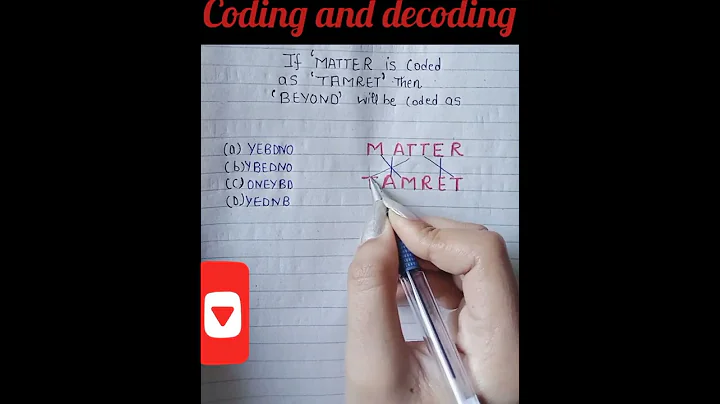 Coding and decoding
If 'MATTER is coded
as 'TAMRET' then
'BEYOND' will be coded as
(a) YEBDNO
(b) YBEDNO
(C) ONEYBD
(D) YEDNB
MATTER
TAMRET